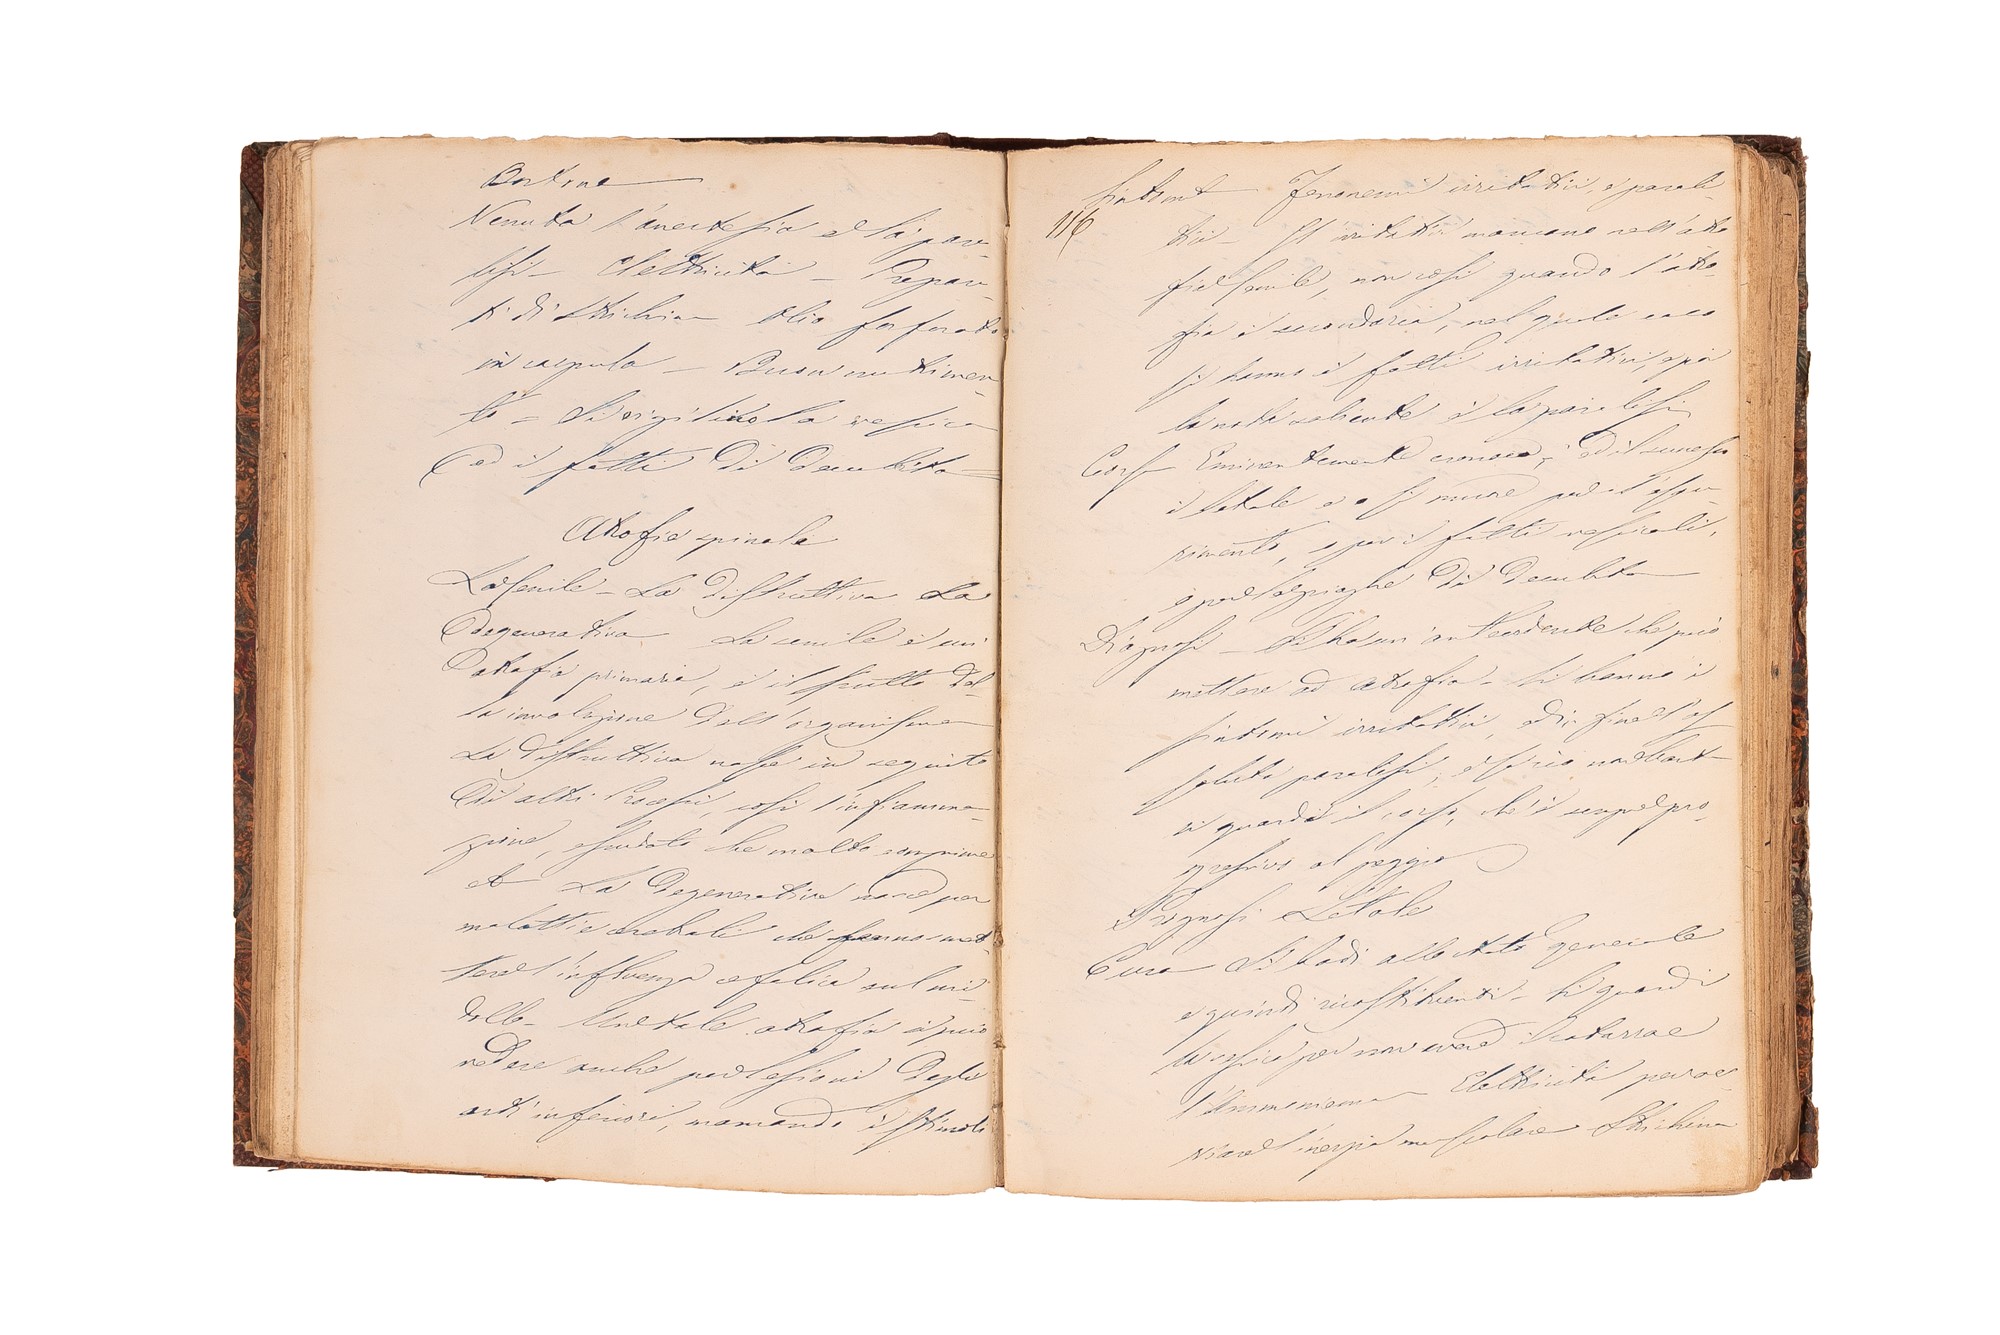 Venuta l'anestesia e la para-
lisi – Elettricità – Prepara-
ti di Strichina Olio fosforato
in capsula – Buon nutrimen
to – Si vigili la vessica
ed i fatti di decubito –
Atrofie spinale
La senile – La distruttiva La
Degenerativa La senile è un'
atrofia primaria, è il frutto del-
la involuzione dell'organismo
La distruttiva nasce in seguito
di altri processi, così l'infiamma-
zione, essudato che molto comprime
et La degenerativa nasce per
malattie cerebrali che fanno smet
tere l'influenza cefalica sul mi-
dollo – Una tale atrofia si può
vedere anche per lesioni degli
arti inferiori, mancando i stimoli
Sintomi Fenomeni irritativi, e parali
116
tici – Gl'irritativi mancano nell'atro
fia senile, non così quando l'atro-
fia è secondaria, nel quale caso
si hanno i fatti irritativi, e poi
la nota saliente è la paralisi
Corso Eminentemente cronaco, ed il successo
è letale e o si muore per l'esau-
rimento, o per i fatti vessicali,
o per le piaghe di decubito
Diagnosi – Si ha un'antecedente che può
mettere ad atrofia – Si hanno i
sintomi irritativi, ed in fine l'as
soluta paralisi, e se ciò non bast
si guardi il corso, che è sempre pro-
gressivo al peggio
Prognosi Letale
Cura Si badi allo stato generale
e quindi ricostituenti – Si guardi
la vessica per non avere il catarro e
l'ammoniemia – Elettricità per av
viare l'inerzia muscolare – Strichina